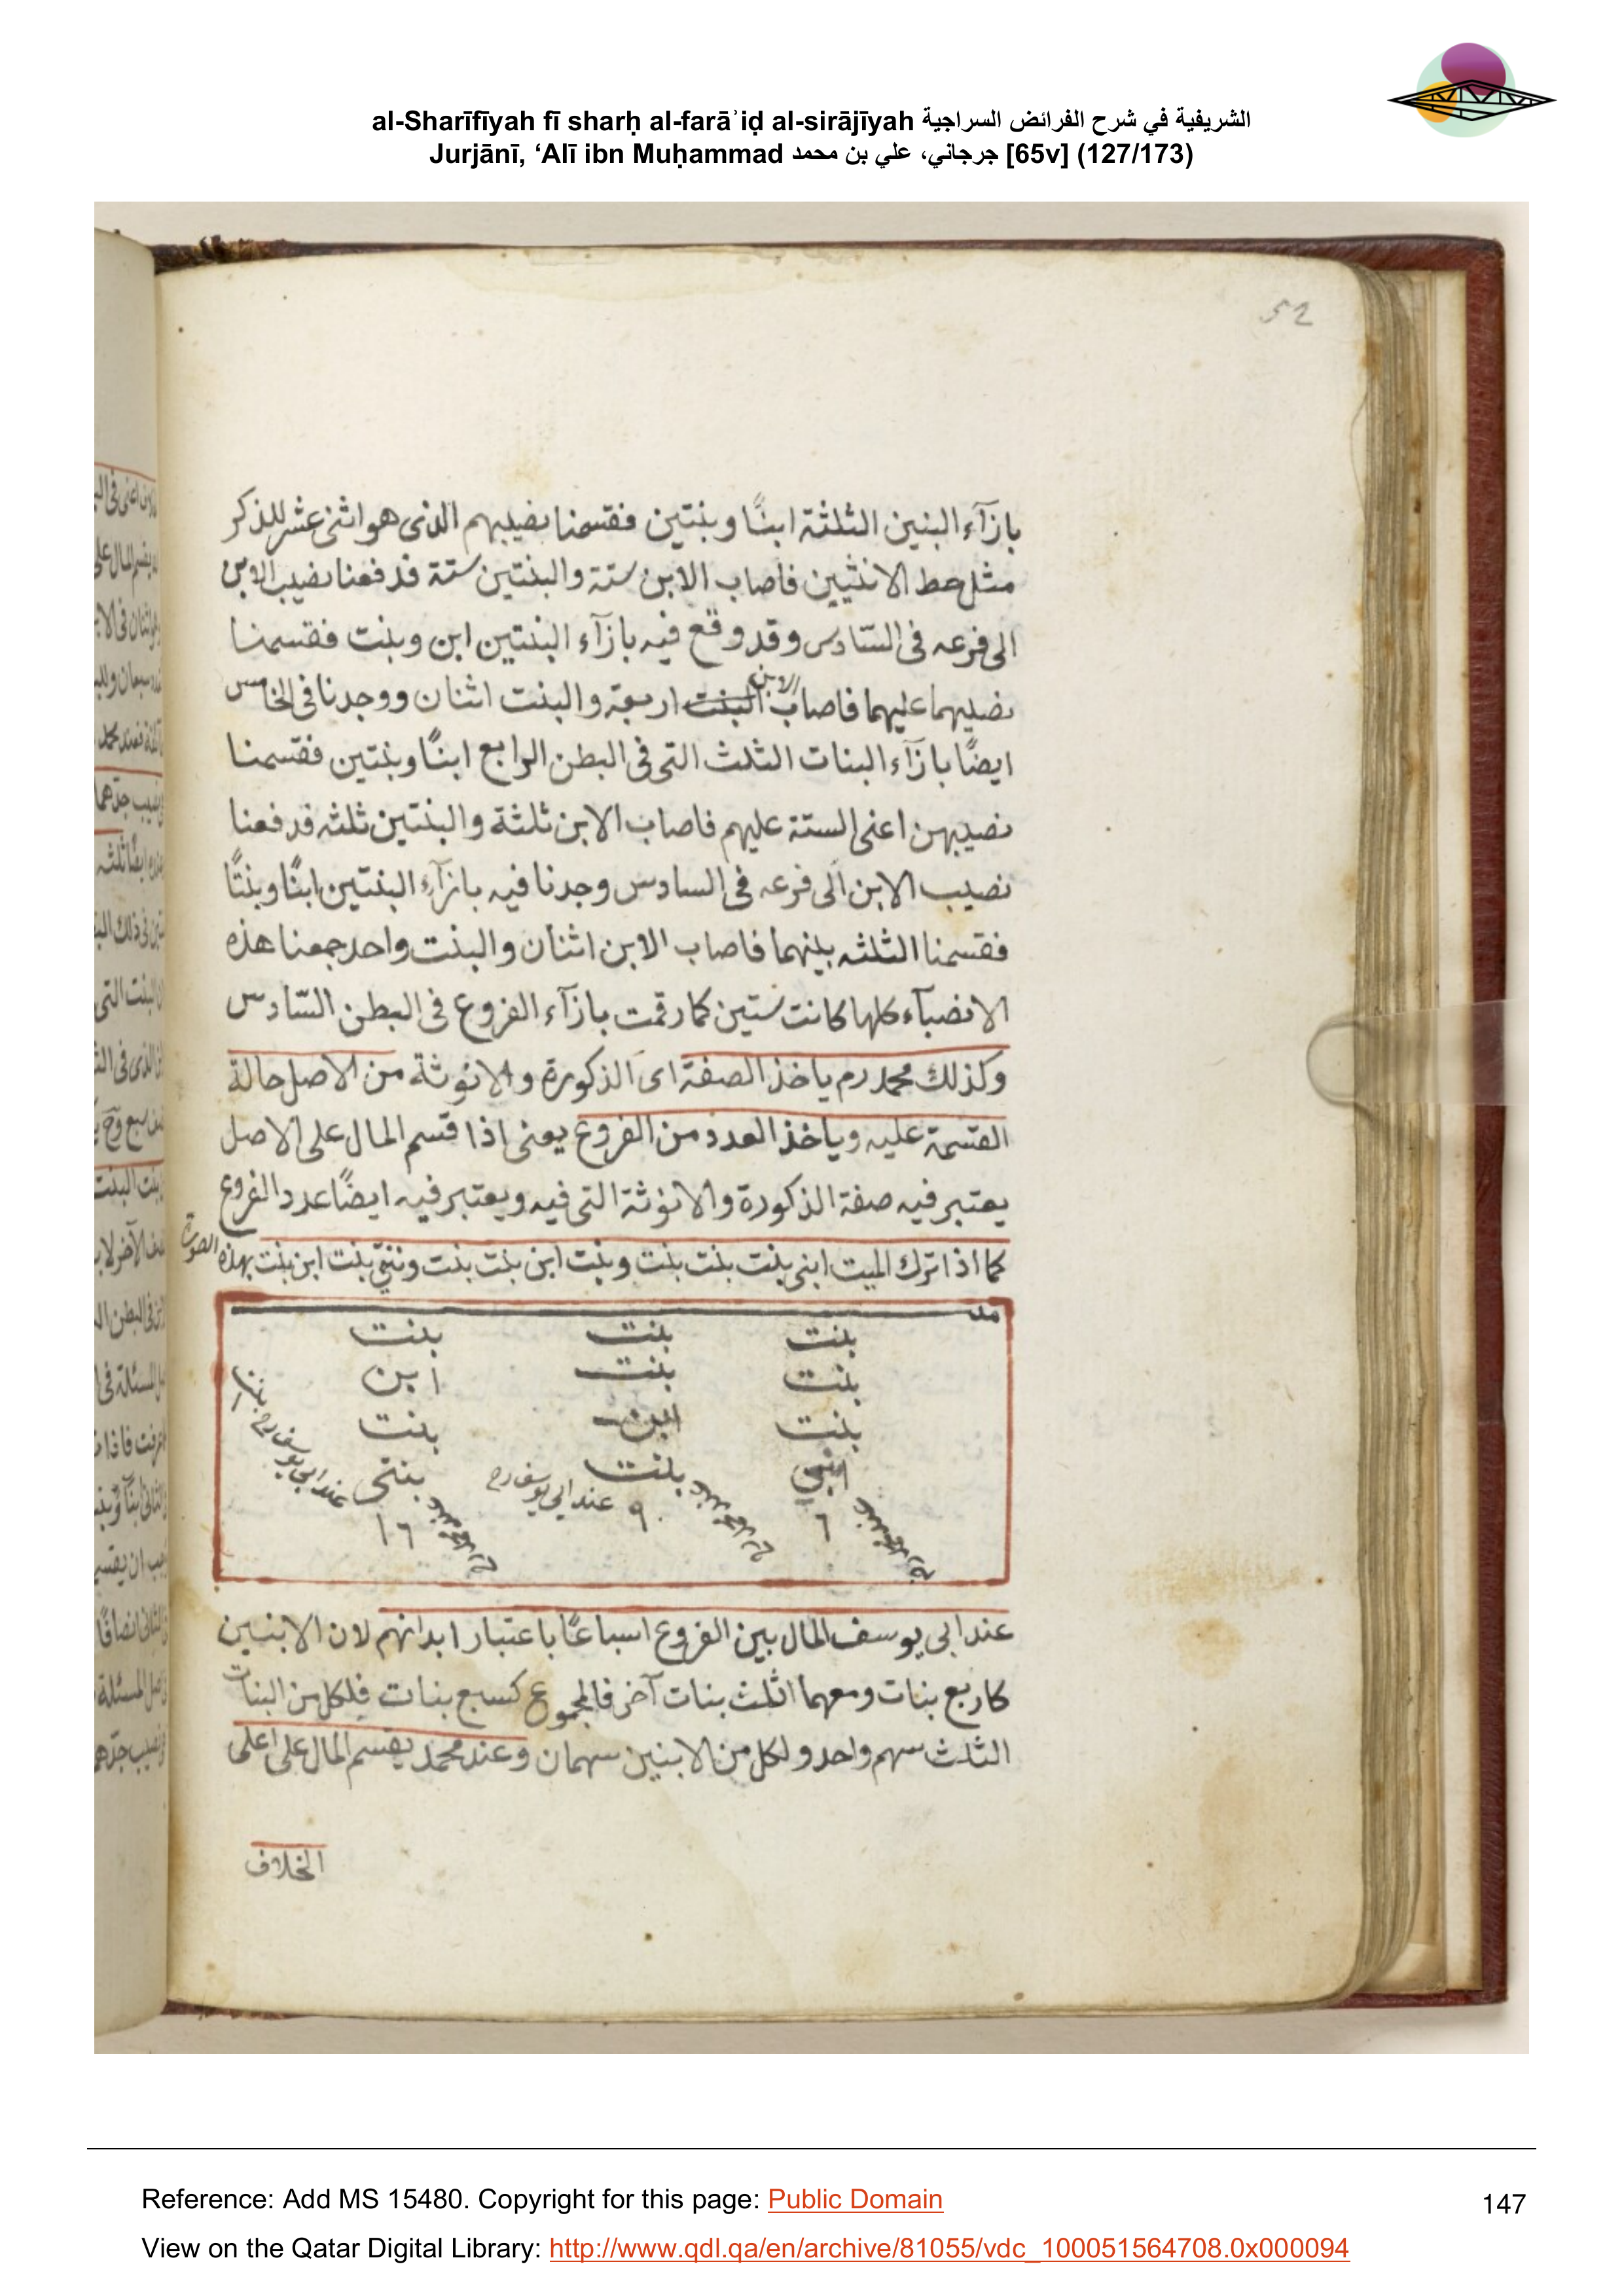 al-Sharīfīyah fī sharḥ al-farāʾiḍ al-sirājīyah الشريفية في شرح الفرائض السراجية
Jurjānī, ‘Alī ibn Muḥammad جرجاني، علي بن محمد [65v] (127/173)
52
بازآء البنين الثلثة ابنًا وبنتين فقسمنا نصيبهم الذى هو اثنى عشر للذكر
مثل حظ الانثيين فاصاب الابن ستة والبنتين ستة فدفعنا نصيب الابن
الى فرعه فى السّادس وقد وقع فيه بازآء البنتين ابن وبنت فقسمنا
نصيبهما عليهما فاصاب الابن اربعة والبنت اثنان ووجدنا فى الخامس
ايضًا بازآء البنات الثلث التى فى البطن الرابع ابنًا وبنتين فقسمنا
نصيبهن اعنى الستة عليهم فاصاب الابن ثلثة والبنتين ثلثه فدفعنا
نصيب الابن الى فرعه فى السادس وجدنا فيه بازآء البنتين ابنًا وبنتًا
فقسمنا الثلثه بينهما فاصاب الابن اثنان والبنت واحد جمعنا هذه
الانصبآء كلها كانت ستين كما رقمت بازآء الفروع فى البطن السّادس
وكذلك محمد رم ياخذ الصفة اى الذكورة والانوثة من الاصل حالة
القسمة عليه وياخذ العدد من الفروع يعنى اذا قسم المال على الاصل
يعتبر فيه صفة الذكورة والانوثة التى فيه ويعتبر فيه ايضًا عدد الفروع
كما اذا ترك الميت ابنى بنت بنت بنت وبنت ابن بنت بنت وبنتى بنت ابن بنت بهذه الصورة
بنت بنت بنت
بنت بنت ابن
بنت ابن بنت
ابنى بنت بنتى
٦ ٩ عند ابى يوسف رح ١٦ عند ابى يوسف رح
عند ابى يوسف المال بين الفروع اسباعًا باعتبار ابدانهم لان الابنين
كاربع بنات ومعهما اثلث بنات آخر فالمجموع كسبع بنات فلكل من البنات
الثلث سهم واحد ولكل من الابنين سهمان وعند محمد يقسم المال على اعلى
الخلاف
Reference: Add MS 15480. Copyright for this page: Public Domain
147
View on the Qatar Digital Library: http://www.qdl.qa/en/archive/81055/vdc_100051564708.0x000094